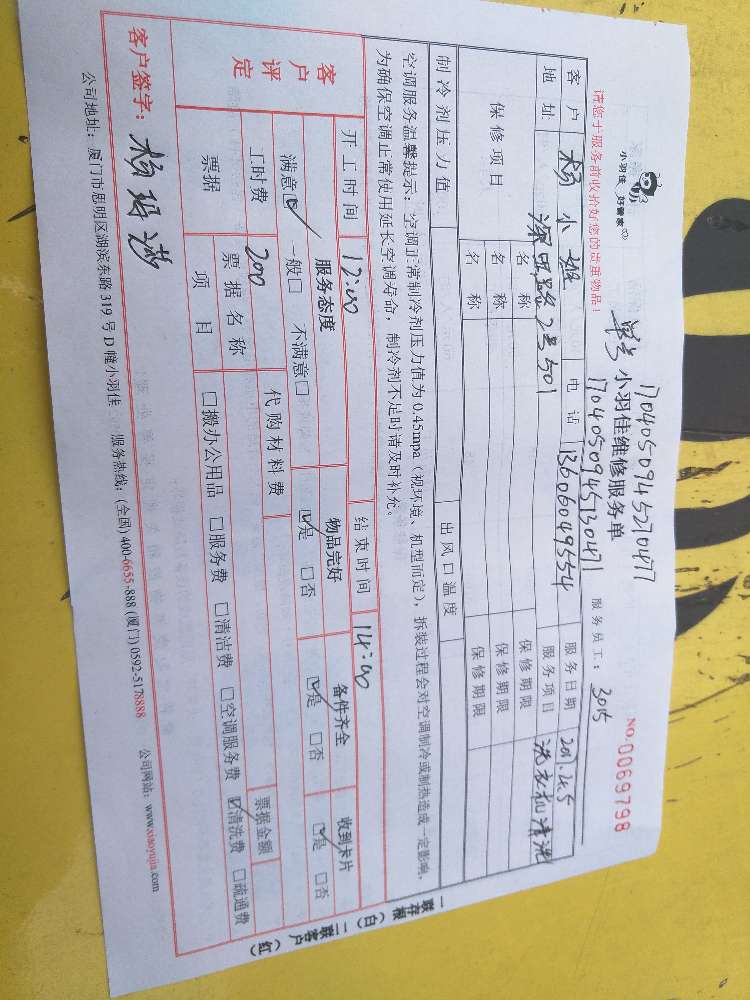 小羽佳 好管家
单号 17040509452710477
1704050945130471
小羽佳维修服务单
NO.0069798
请您于服务前收拾好您的贵重物品!
服务员工: 3015
客户 杨小姐 电话 13606049554 服务日期 2017.4.5
地址 深田路2号501 服务项目 洗衣机清洗
保修项目 名称 保修期限
名称 保修期限
名称 保修期限
制冷剂压力值 出风口温度
空调服务温馨提示: 空调正常制冷剂压力值为0.45mpa (视环境、机型而定), 拆装过程会对空调制冷或制热造成一定影响,
为确保空调正常使用延长空调寿命, 制冷剂不足时请及时补充。
开工时间 12:00 结束时间 14:00
客户评定 服务态度 物品完好 备件齐全 收到卡片
满意☑ 一般☐ 不满意☐ ☑是 ☐否 ☑是 ☐否 ☑是 ☐否
工时费 200 代购材料费 票据金额
票据 票据名称
项目 ☐搬办公用品 ☐服务费 ☐清洁费 ☐空调服务费 ☑清洗费 ☐疏通费
客户签字:
公司地址: 厦门市思明区湖滨东路319号D幢小羽佳 服务热线: (全国) 400-6655-888 (厦门) 0592-5178888 公司网站: www.xiaoyujia.com
一联存根(白) 二联客户(红)